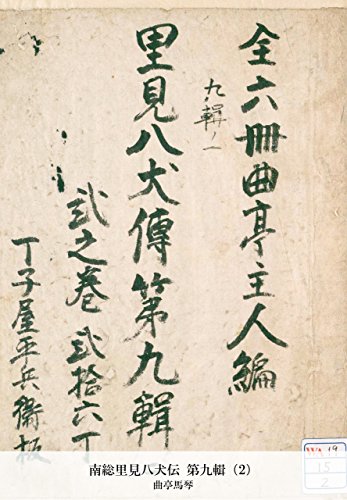 全六冊曲亭主人編
九輯ノ一
里見八犬傳第九輯
弐之巻 弐拾六丁
丁子屋平兵衛板
WA 19
15
2
南総里見八犬伝 第九輯（2）
曲亭馬琴